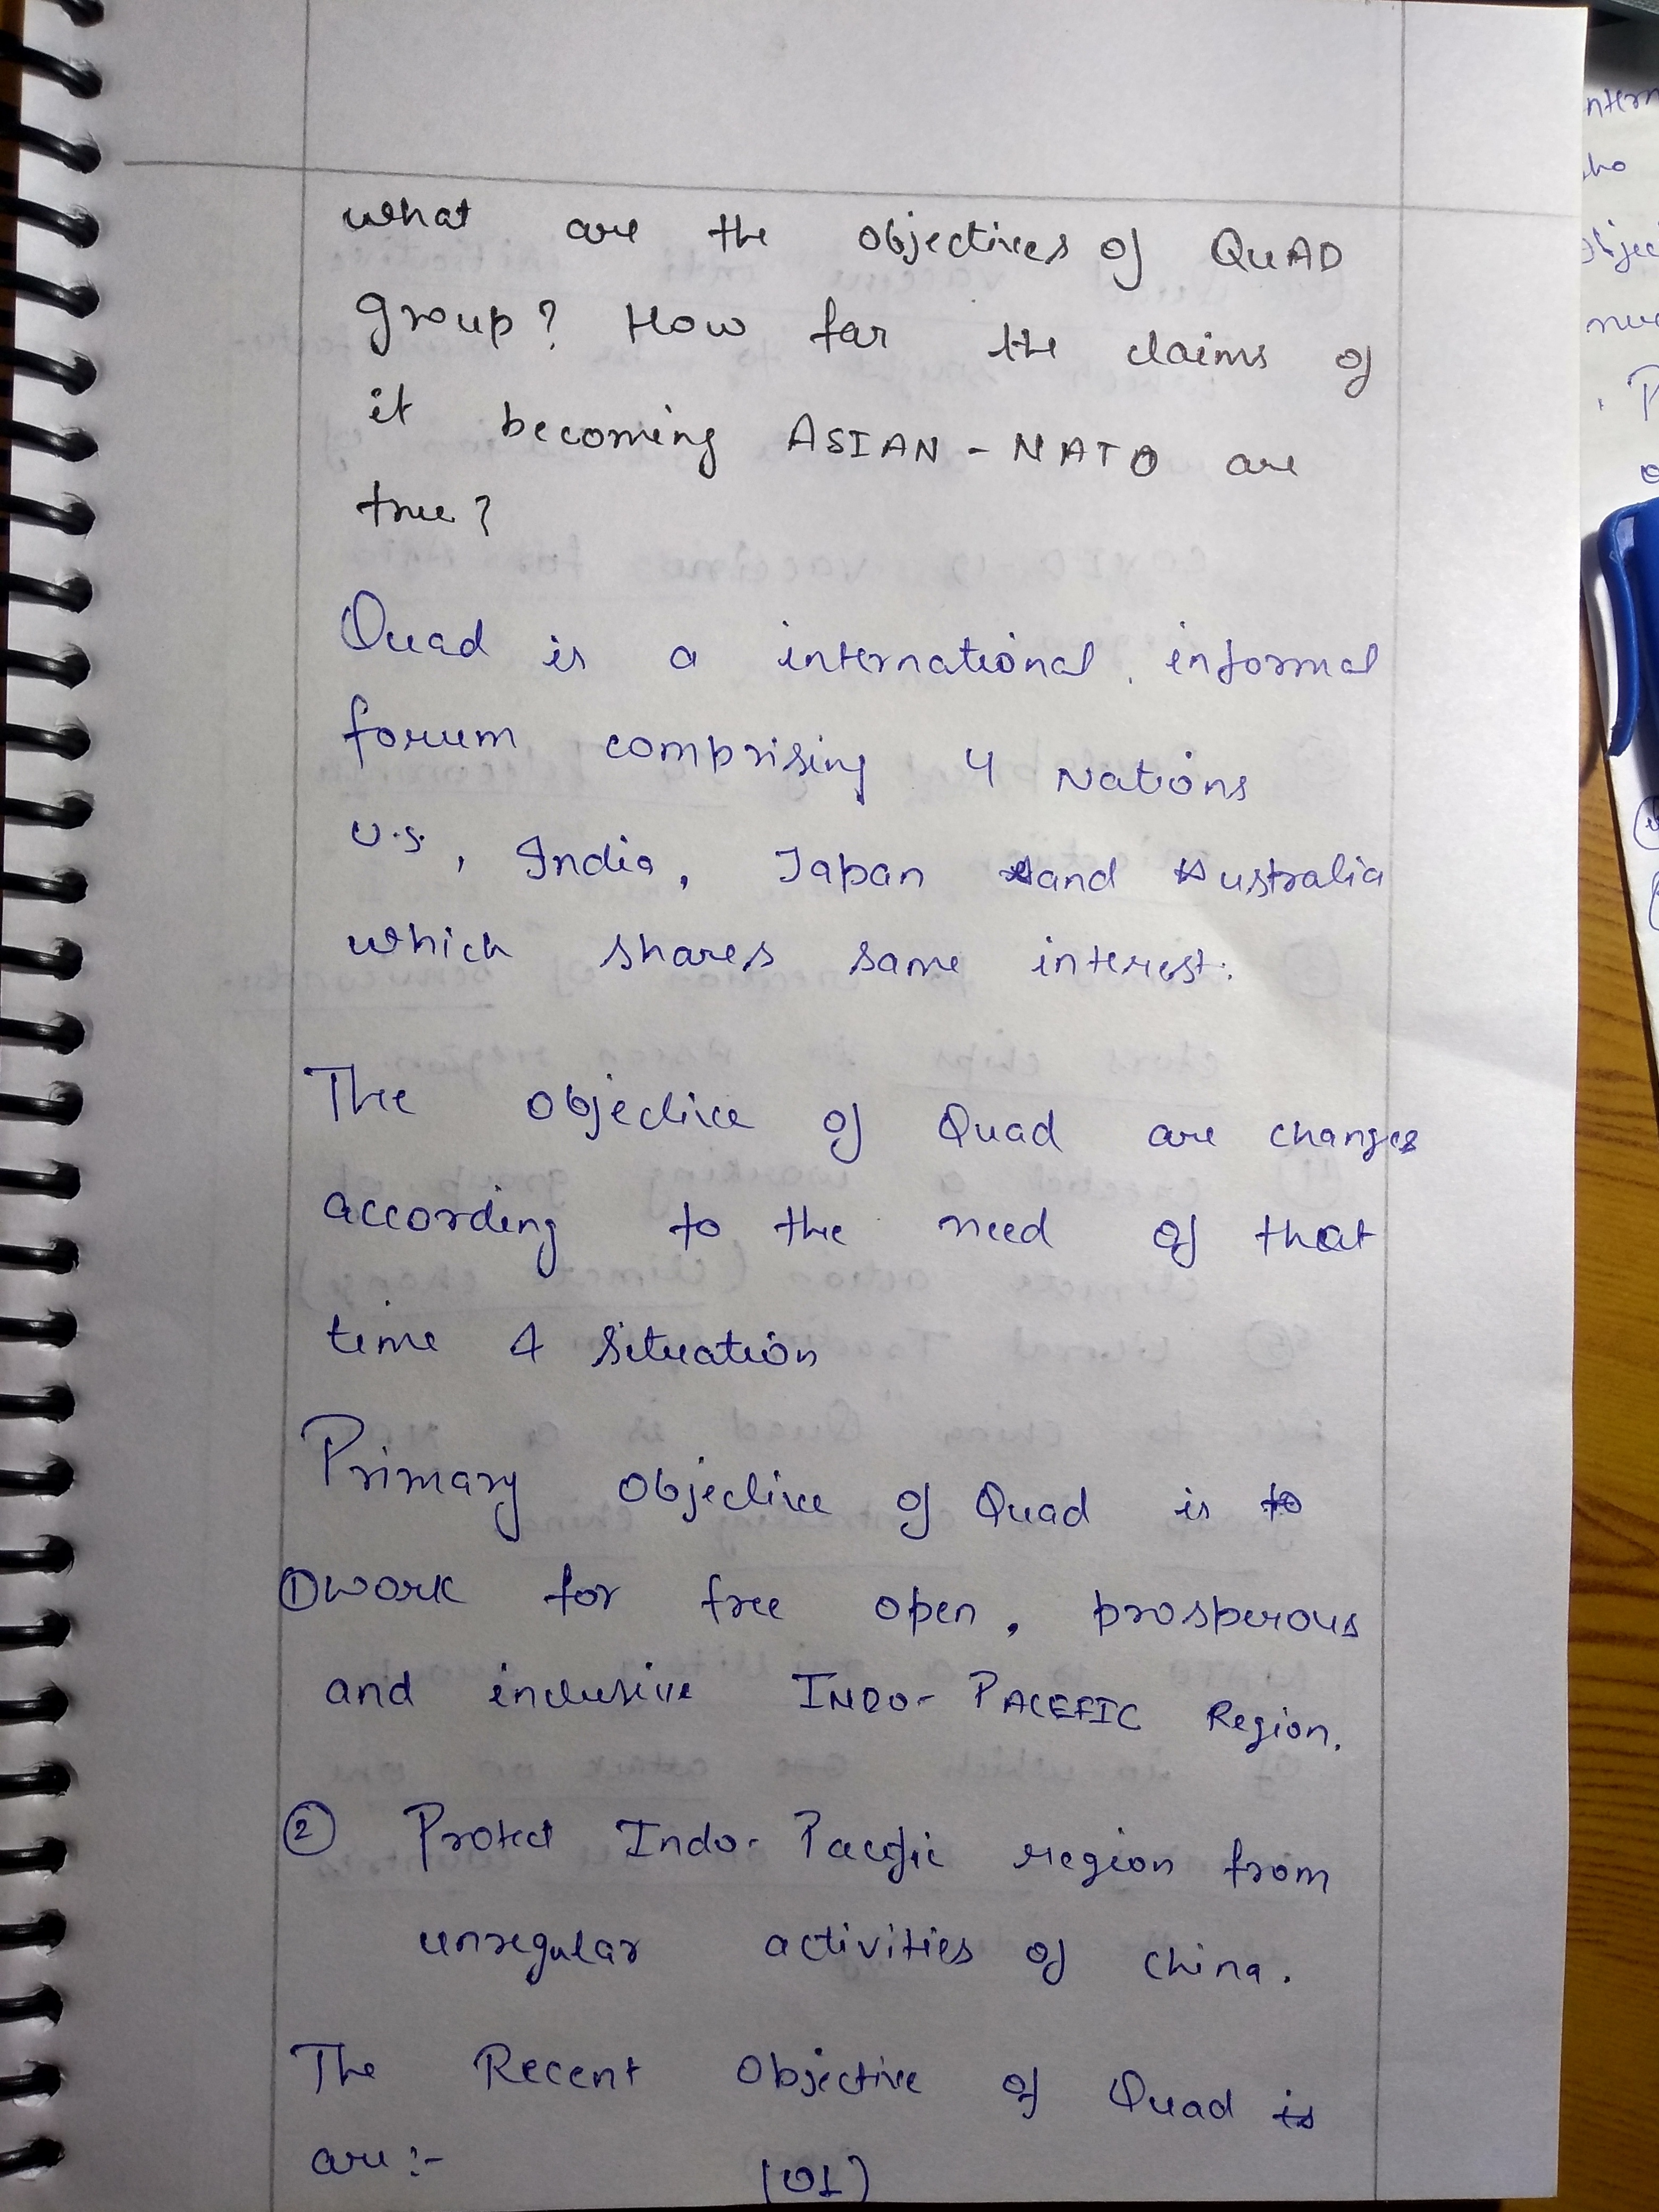 what are the objectives of QUAD
group? How far the claims of
it becoming ASIAN-NATO are
true?
Quad is a international, informal
forum comprising 4 Nations
U.S, India, Japan and Australia
which shares same interest.
The objective of Quad are changes
according to the need of that
time & situation
Primary objective of Quad is to
① work for free open, prosperous
and inclusive INDO-PACEFIC Region.
② Protect Indo-Pacific region from
unregular activities of China.
The Recent Objective of Quad is
are:-
(01)
ntern
objec